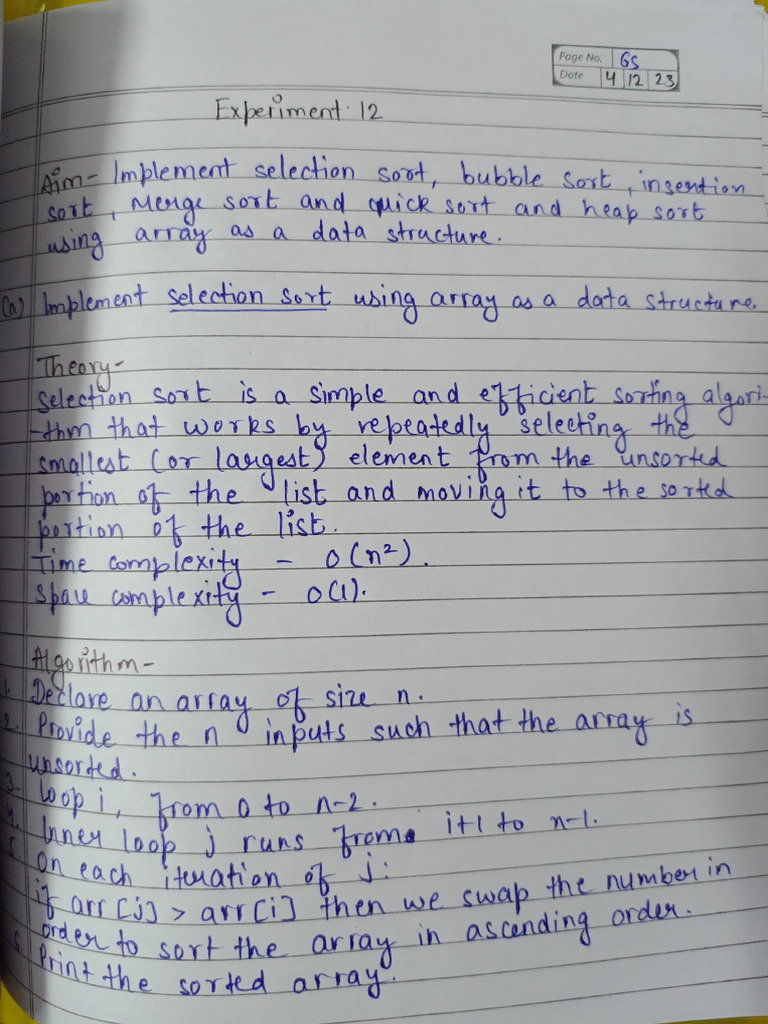 Page No. 65
Date 4 12 23
Experiment 12
Aim- Implement selection sort, bubble sort, insertion
sort, Merge sort and quick sort and heap sort
using array as a data structure.
(a) Implement selection sort using array as a data structure.
Theory-
Selection sort is a simple and efficient sorting algori-
-thm that works by repeatedly selecting the
smallest (or largest) element from the unsorted
portion of the list and moving it to the sorted
portion of the list.
Time complexity - O(n²).
Space complexity - O(1).
Algorithm-
1. Declare an array of size n.
2. Provide the n inputs such that the array is
unsorted.
3. loop i, from 0 to n-2.
4. Inner loop j runs from i+1 to n-1.
5. On each iteration of j:
if arr[j] > arr[i] then we swap the number in
order to sort the array in ascending order.
6. Print the sorted array.